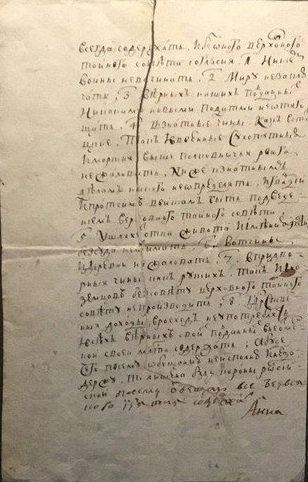 всегда содержать и без оного верховного
тайного совета согласия: 1. Ни с кем
войны не всчинать, 2. Миру не заклю
чать, 3. верных наших подданных
никакими новыми податми не отяго
щать, 4. В знатные чины, как в ста
цкие, так и в военные сухопутные
и морские, выше полковничья ранга
не жаловать, ниже к знатным
делам никого не определять, и гвардии
и прочим полкам быть под веде
нием верховного тайного совета
5. У шляхетства живота и имения и чести
без суда не отымать 6. Вотчины
и деревни не жаловать 7. в придво
рные чины как руских, так и ино
земцов без совету верховного тайного
совета не производить 8.
доходы в расход не употреблять
и всех верных своих поданных в неотме
нной своей милости содержать, а буде
чего по сему обещанию не исполню и не до
держу, то лишена буду короны росий
ской по сему обещаю все без вся
кого содержать
Анна